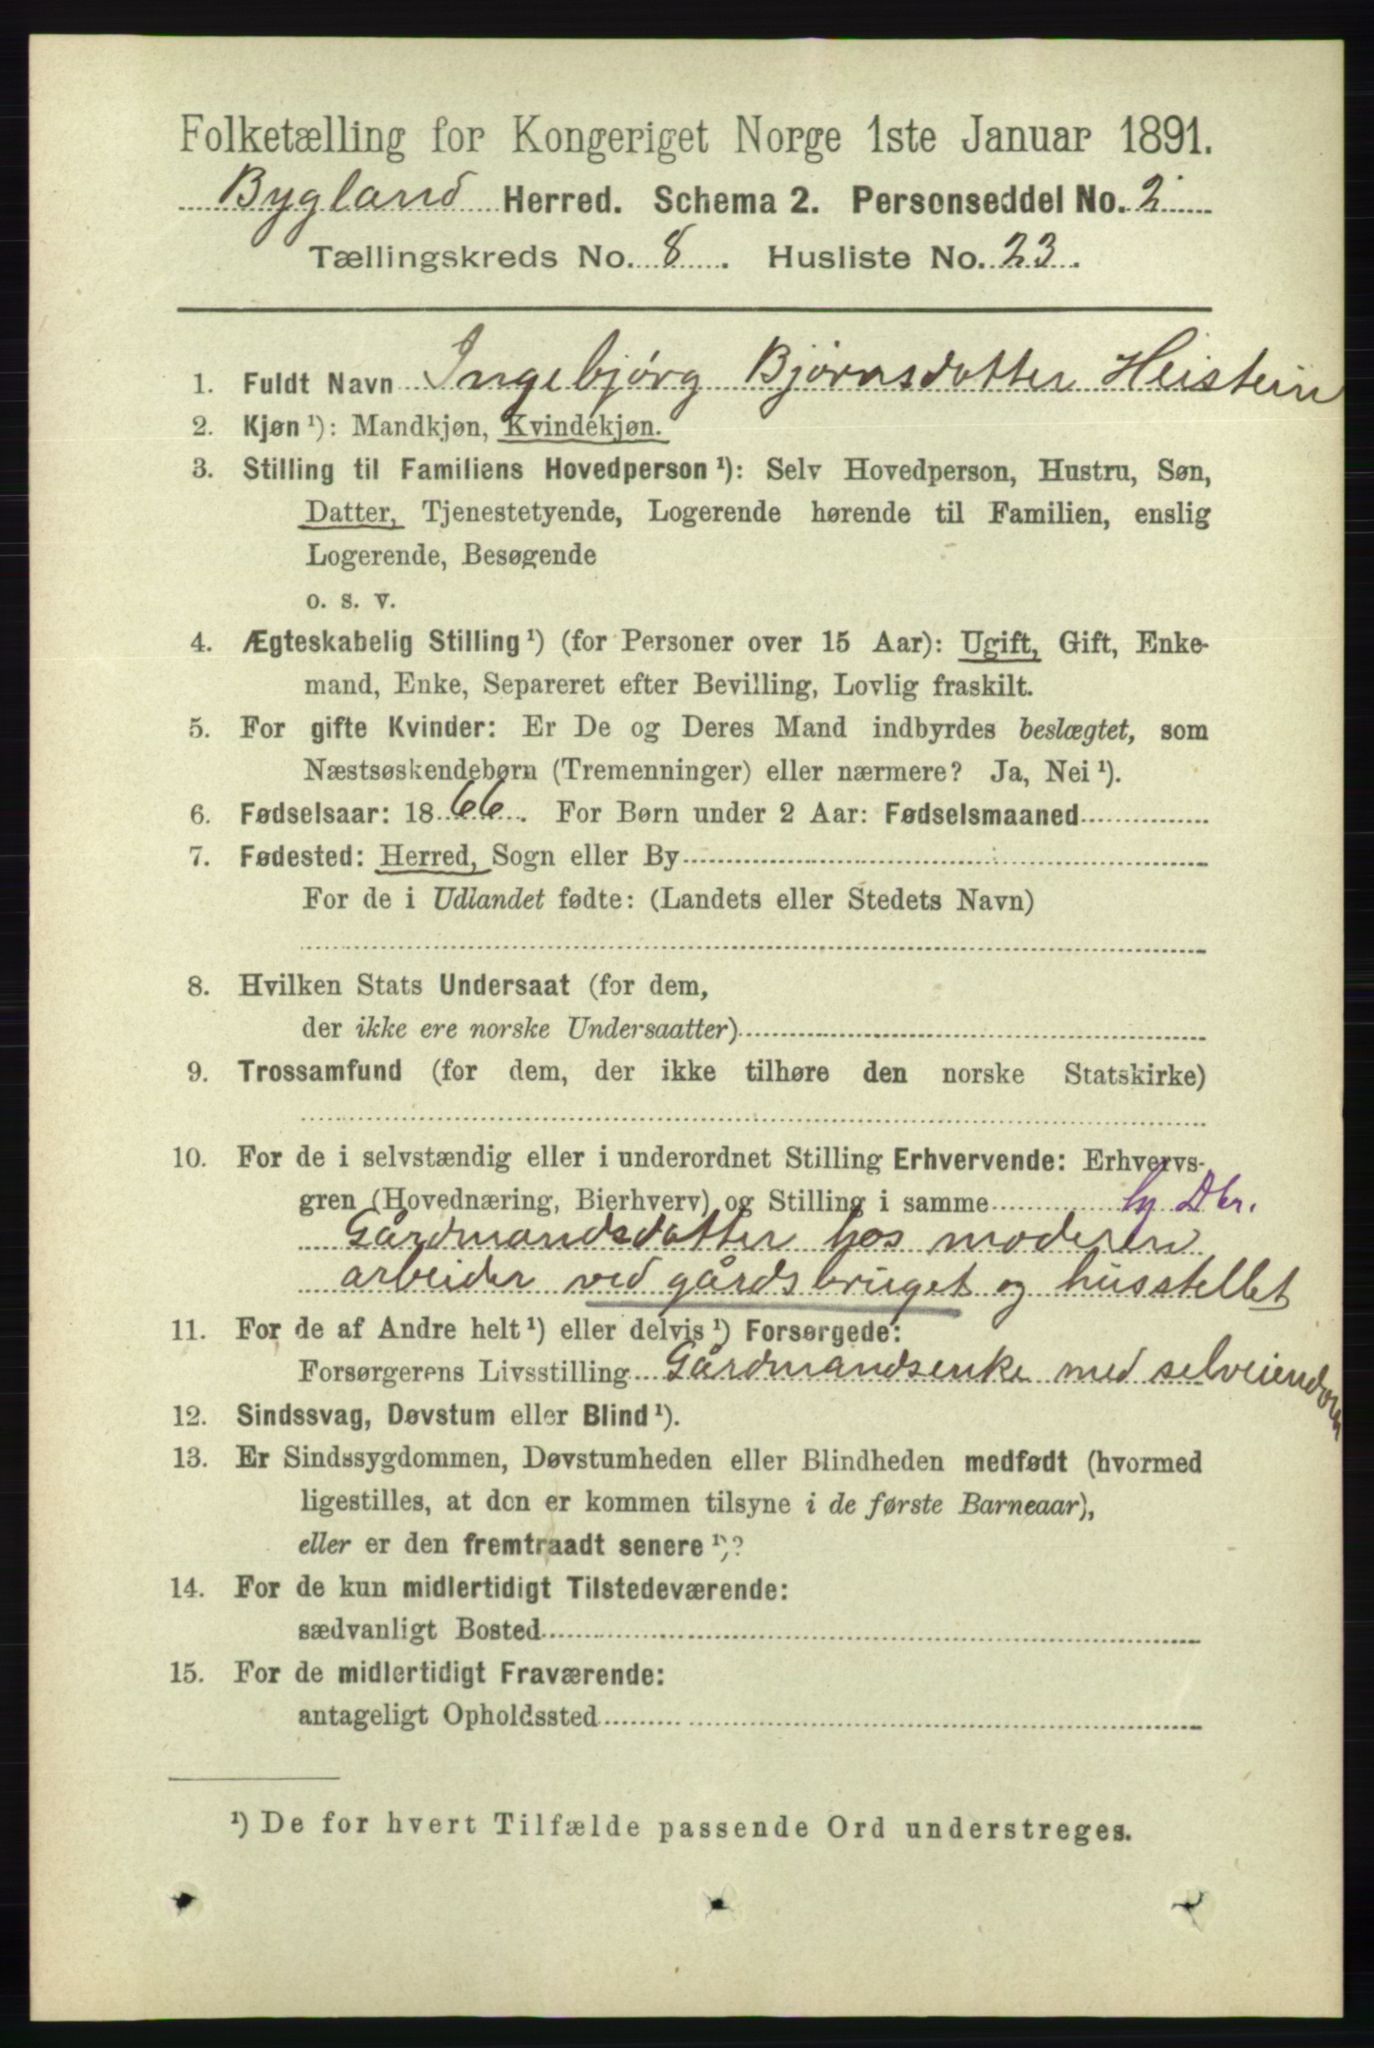 Folketælling for Kongeriget Norge 1ste Januar 1891.
Bygland Herred. Schema 2. Personseddel No. 2
Tællingskreds No. 8. Husliste No. 23.
1. Fuldt Navn Ingebjørg Bjørnsdatter Heistein
2. Kjøn ¹): Mandkjøn, Kvindekjøn.
3. Stilling til Familiens Hovedperson ¹): Selv Hovedperson, Hustru, Søn,
Datter, Tjenestetyende, Logerende hørende til Familien, enslig
Logerende, Besøgende
o. s. v.
4. Ægteskabelig Stilling ¹) (for Personer over 15 Aar): Ugift, Gift, Enke-
mand, Enke, Separeret efter Bevilling, Lovlig fraskilt.
5. For gifte Kvinder: Er De og Deres Mand indbyrdes beslægtet, som
Næstsøskendebørn (Tremenninger) eller nærmere? Ja, Nei ¹).
6. Fødselsaar: 1866. For Børn under 2 Aar: Fødselsmaaned
7. Fødested: Herred, Sogn eller By
For de i Udlandet fødte: (Landets eller Stedets Navn)
8. Hvilken Stats Undersaat (for dem,
der ikke ere norske Undersaatter)
9. Trossamfund (for dem, der ikke tilhøre den norske Statskirke)
10. For de i selvstændig eller i underordnet Stilling Erhvervende: Erhvervs-
gren (Hovednæring, Bierhverv) og Stilling i samme Dbr.
Gårdmandsdatter hos moderen
arbeider ved gårdsbruget og husstellet
11. For de af Andre helt ¹) eller delvis ¹) Forsørgede:
Forsørgerens Livsstilling Gårdmandsenke med selveiendom
12. Sindssvag, Døvstum eller Blind ¹).
13. Er Sindssygdommen, Døvstumheden eller Blindheden medfødt (hvormed
ligestilles, at den er kommen tilsyne i de første Barneaar),
eller er den fremtraadt senere ¹)?
14. For de kun midlertidigt Tilstedeværende:
sædvanligt Bosted
15. For de midlertidigt Fraværende:
antageligt Opholdssted
¹) De for hvert Tilfælde passende Ord understreges.